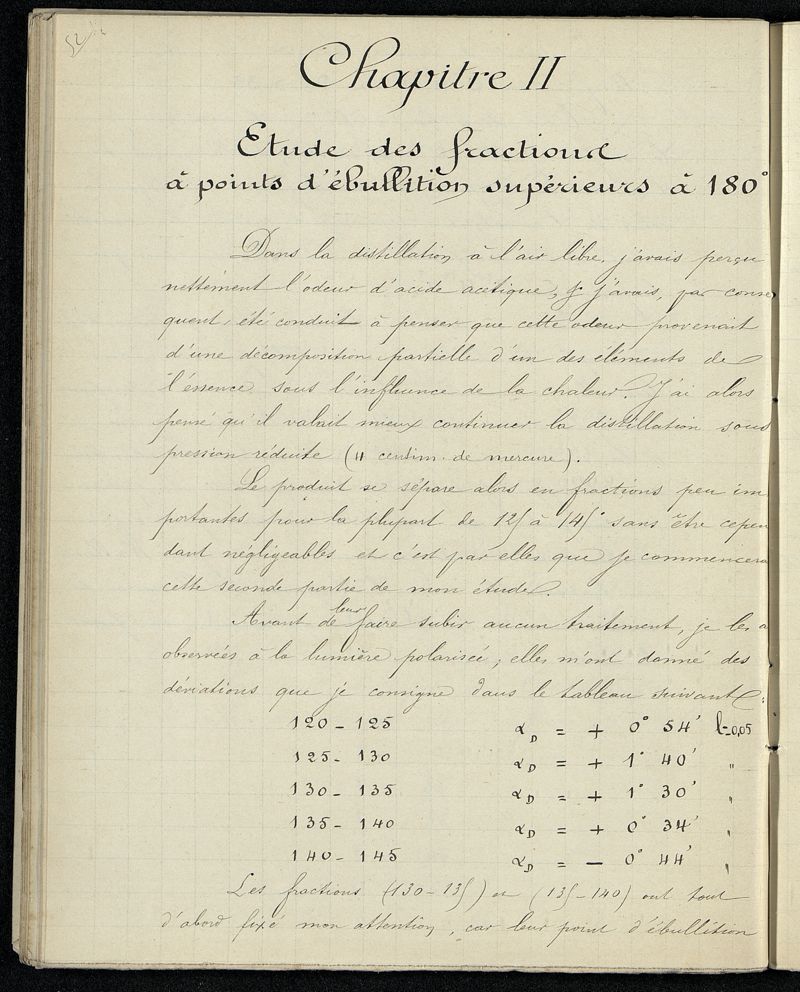 52
Chapitre II
Etude des fractions
à points d'ébullition supérieurs à 180°
Dans la distillation à l'air libre, j'avais perçu
nettement l'odeur d'acide acétique, & j'avais, par consé
quent, été conduit à penser que cette odeur provenait
d'une décomposition partielle d'un des éléments de
l'éssence sous l'influence de la chaleur. J'ai alors
pensé qu'il valait mieux continuer la distillation sous
pression réduite (4 centim. de mercure).
Le produit se sépare alors en fractions peu im
portantes pour la plupart de 125 à 145° sans être cepen
dant négligeables et c'est par elles que je commencerai
cette seconde partie de mon étude.
Avant de leur faire subir aucun traitement, je les a
observées à la lumière polarisée; elles m'ont donné des
déviations que je consigne dans le tableau suivant:
120 - 125 α_D = + 0° 54' l=0,05
125 - 130 α_D = + 1° 40' "
130 - 135 α_D = + 1° 30' "
135 - 140 α_D = + 0° 34' "
140 - 145 α_D = - 0° 44' "
Les fractions (130-135) et (135-140) ont tout
d'abord fixé mon attention, car leur point d'ébullition